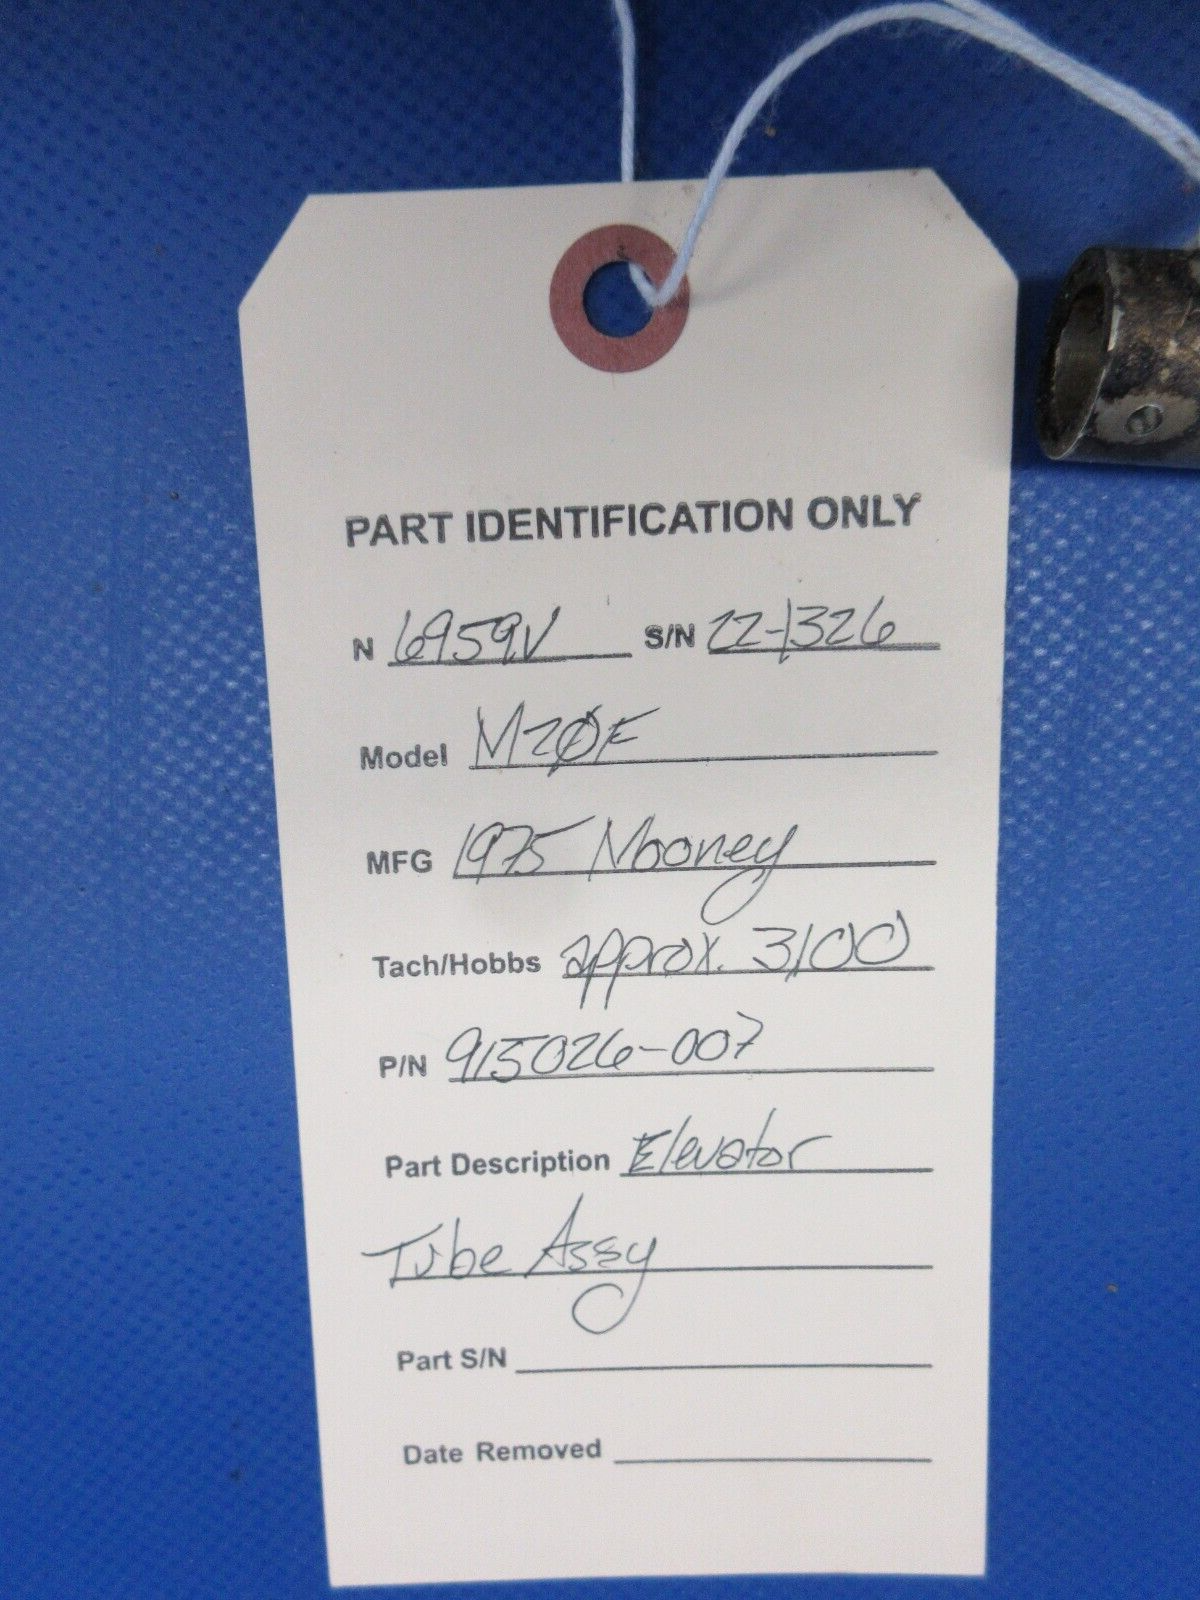 PART IDENTIFICATION ONLY
N 6959V S/N 22-1326
Model M20F
MFG 1975 Mooney
Tach/Hobbs approx. 3100
P/N 915026-007
Part Description Elevator
Tube Assy
Part S/N
Date Removed